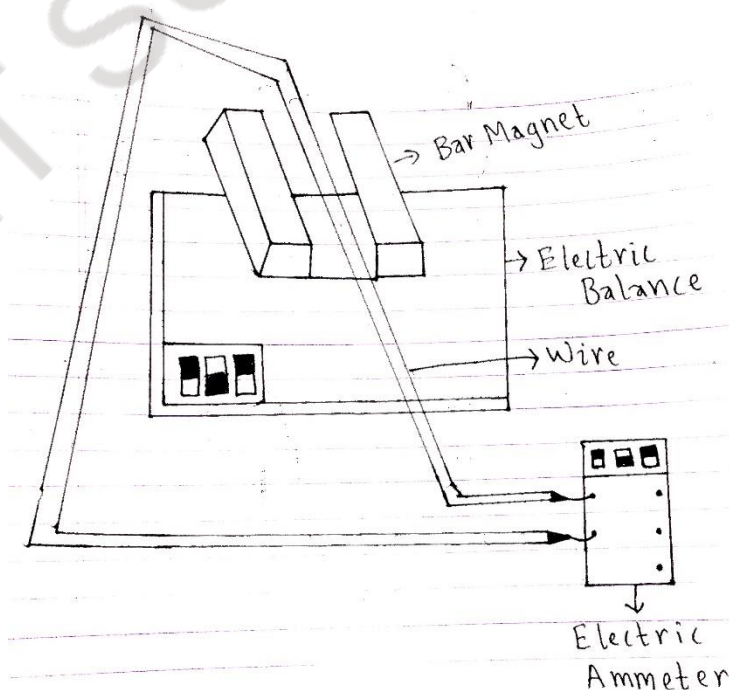 Bar Magnet
Electric
Balance
Wire
Electric
Ammeter